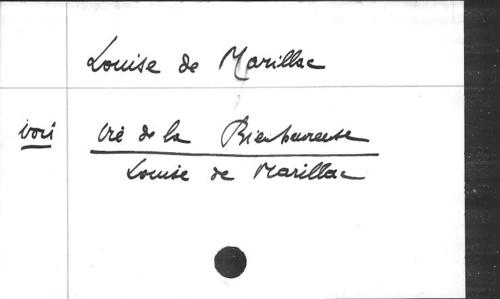 Louise de Marillac
voir Vie de la Bienheureuse
Louise de Marillac